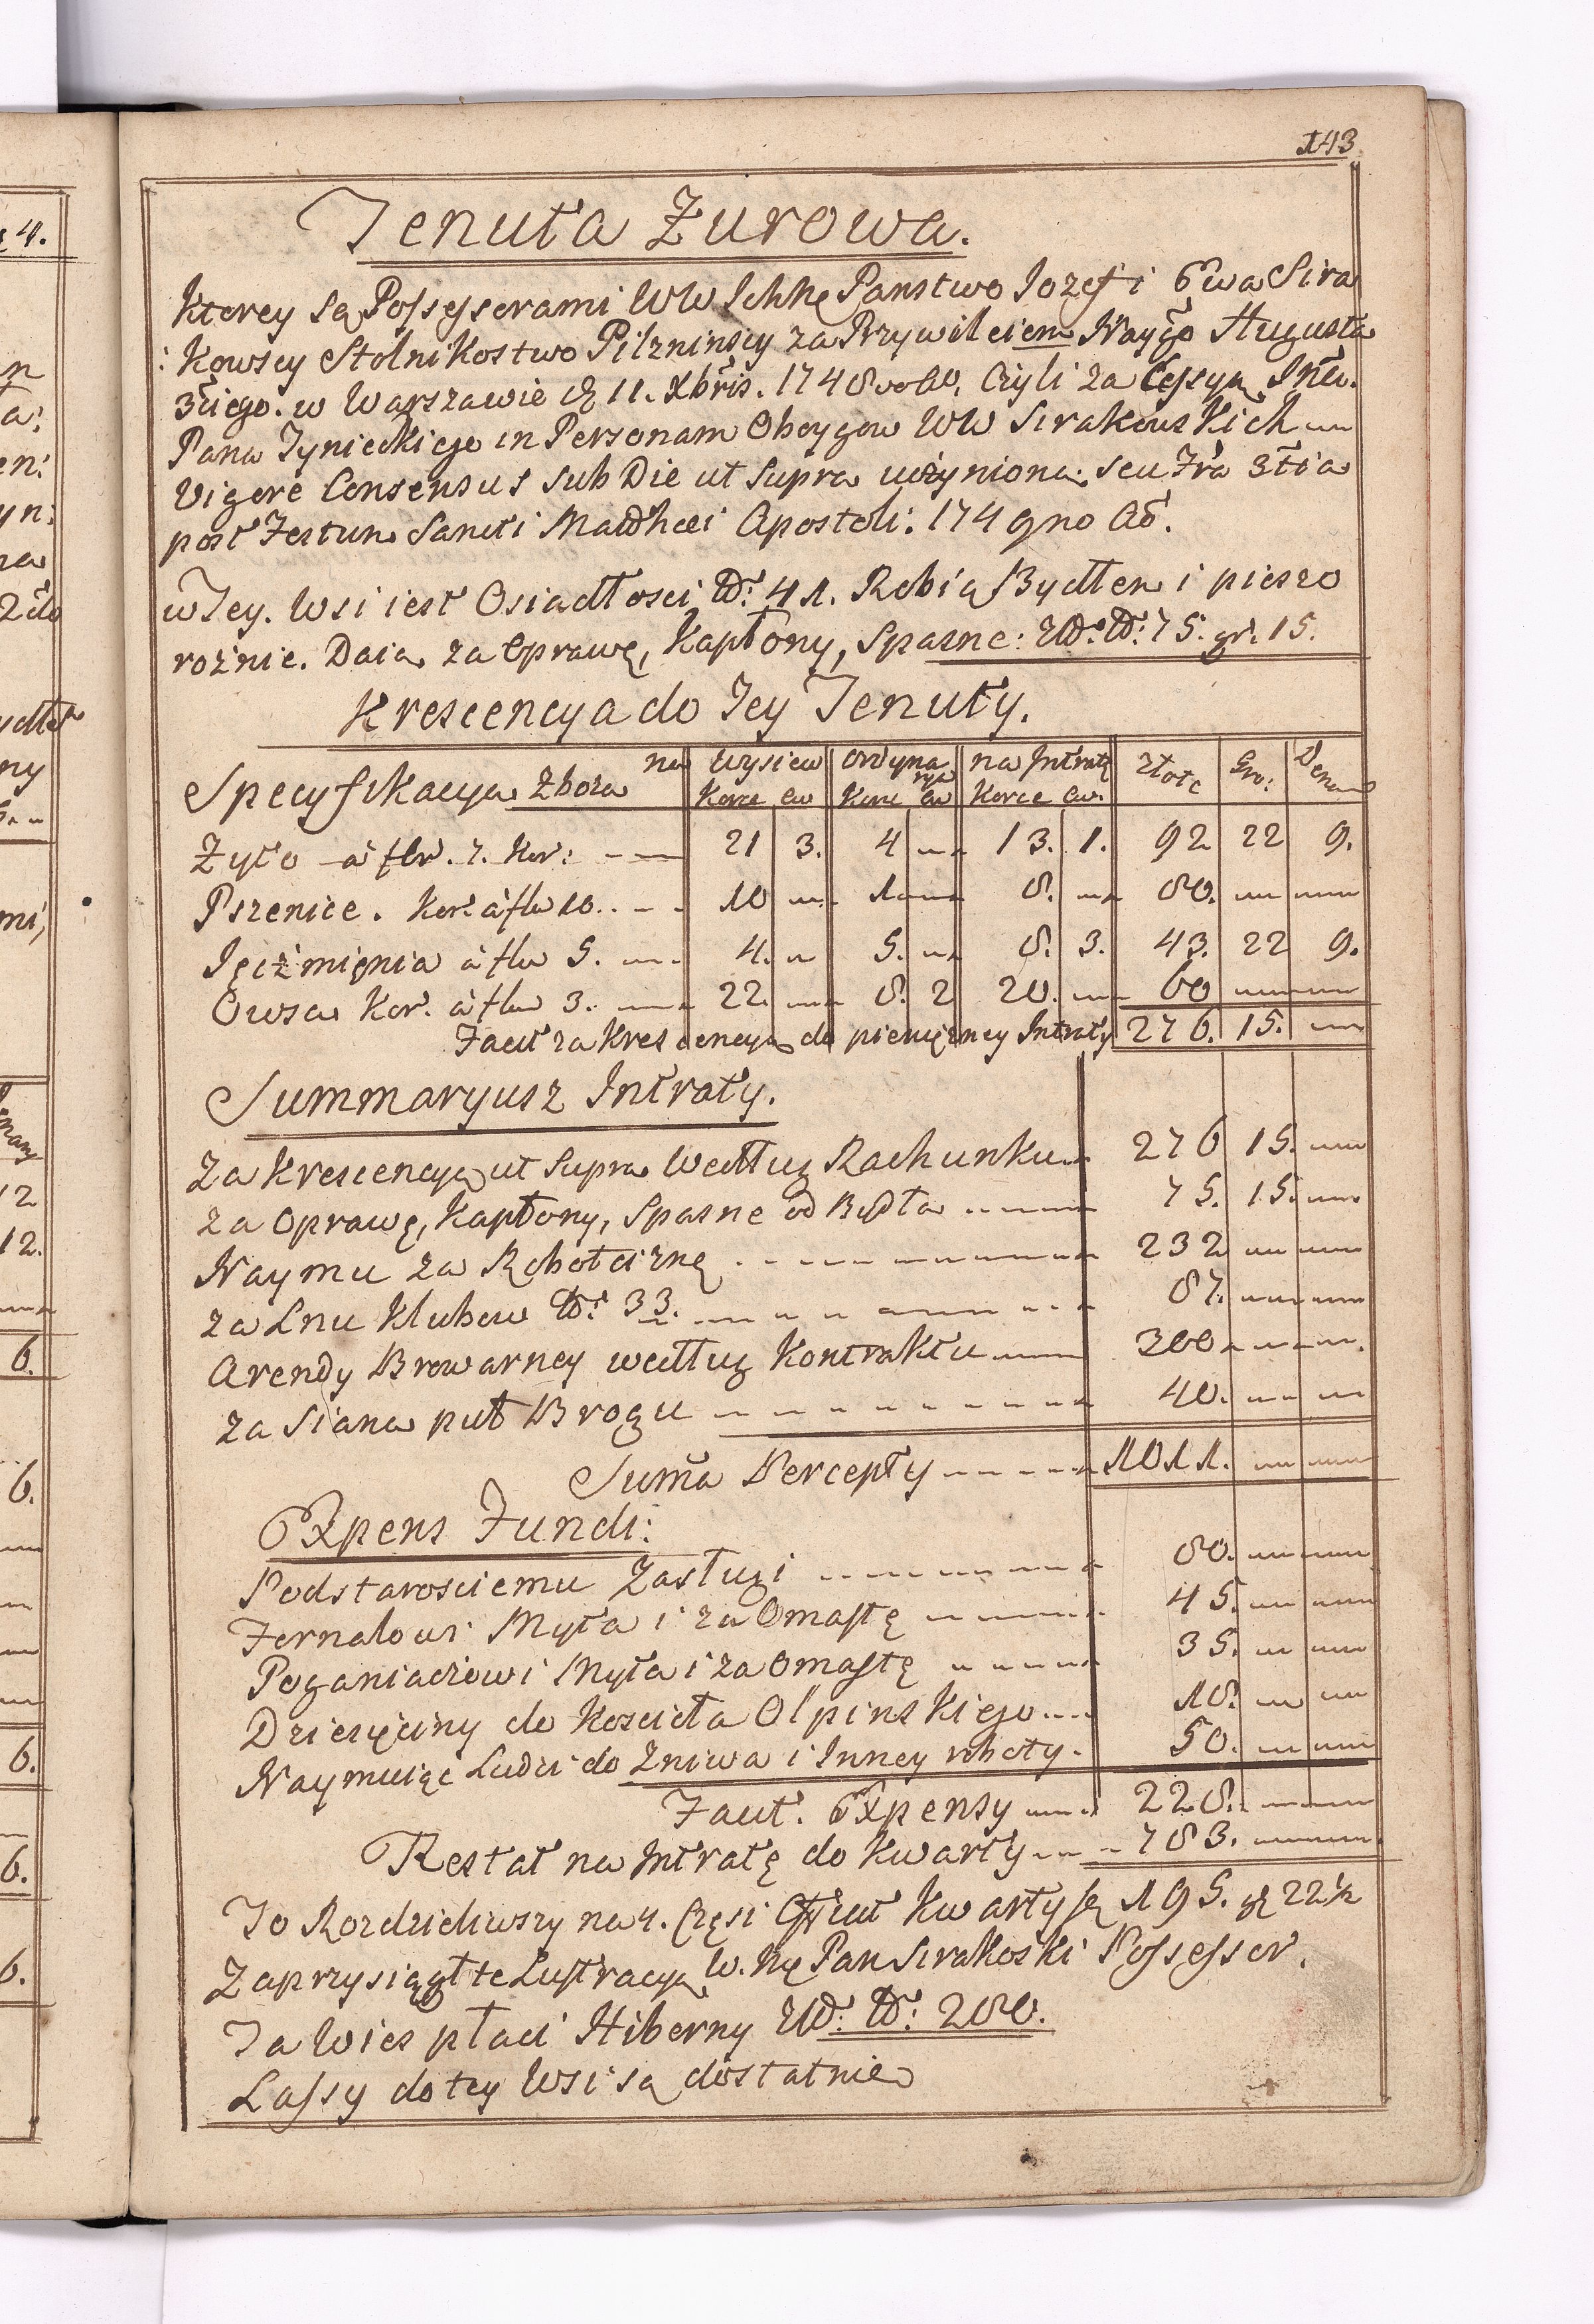 143
Tenuta Żurowa.
Ktorey są Possessorami WW Ichhę Panstwo Iozef i Ewa Sira
: Kowscy Stolnikostwo Pilzninscy za Przywileiem Nayśgo Augusta
3ciego. w Warszawie d 11. Xbris. 1748vo Ao. Czyli za Cessyą
Pana Tynieckiego in Personam Oboygow WW Sirakowskich
Vigore Consensus sub Die ut Supra uczyniona. seu Fra 3tia
post Festum Sancti Matthæi Apostoli. 1749no Ao.
w Tey. Wsi iest Osiadłosci No: 41. Robią Bydłem i pieszo
rożnie. Daią za Oprawę, Kapłony, Spasne: No: 75. gr. 15.
Krescencya do Tey Tenuty.
Specyfikacya Zboża na Wysiew Ordynaryą na Intratę Złote Gro: Denar
Korce Cw Korce Cw Korce Cw.
Żyto a flor. 7. Kor: 21 3. 4 13. 1. 92 22 9.
Pszenice. Kor. a flo 10. 10 1 8. 80.
Ięczmięnia a flo 5. 4. 5. 8. 3. 43. 22 9.
Owsa Kor. a flo 3. 22. 8. 2 20. 60
Facit za Krescencyą do pieniężney Intraty 276. 15.
Summaryusz Intraty.
Za Krescencyą ut Supra Według Rachunku 276 15.
za Oprawę, Kapłony, Spasne od Bydła 75. 15.
Naymu za Robotciznę 232
za Lnu Klubow No: 33. 87.
Arendy Browarney według Kontraktu 300
za Siana puł Brogu 40.
Suma Percepty 1011.
Expens Fundi:
Podstarosciemu Zasługi 80.
Fornalowi Myta i za Omastę 45.
Poganiaczowi Myta i za Omastę 35.
Dziesięciny do Koscioła Olpinskiego 18.
Naymuiąc Ludzi do Żniwa i Inney roboty. 50.
Facit. Expensy 228.
Restat na Intratę do Kwarty 783.
To Rozdzieliwszy na 4. Częsci Kwarty 195. gr 22½
Zaprzysiągł tę Lustracyą W. Pan Sirakoski Possessor.
Ta Wies płaci Hiberny No: 280.
Lassy do tey Wsi są dostatnie